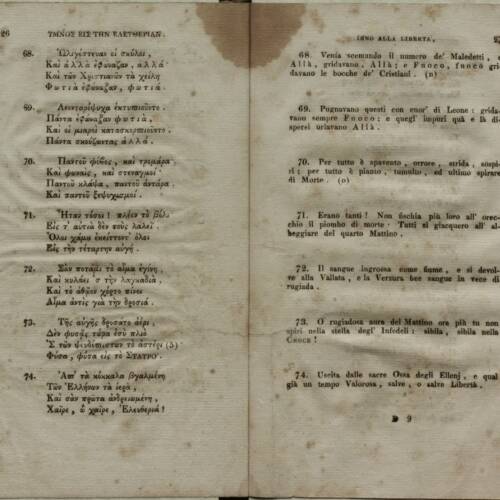 26 ΥΜΝΟΣ ΕΙΣ ΤΗΝ ΕΛΕΥΘΕΡΙΑΝ.
68. Ὠλιγόστευαν οἱ σκύλοι,
Καὶ ἀλλὰ ἐφώναζαν, ἀλλά·
Καὶ τῶν Χριστιανῶν τὰ χείλη
Φωτιὰ ἐφώναζαν, φωτιά.
69. Λεονταρόψυχα ἐκτυπιοῦντο.
Πάντα ἐφώναζαν φωτιά,
Καὶ οἱ μιαροὶ κατασκορπιοῦντο.
Πάντα σκούζοντας ἀλλά.
70. Παντοῦ φόβος, καὶ τρομάρα,
Καὶ φωναὶς, καὶ στεναγμοί·
Παντοῦ κλάψα, παντοῦ ἀντάρα,
Καὶ παντοῦ ξεψυχισμοί.
71. Ἦταν τόσοι! πλέον τὸ βόλι
Εἰς τ' αὐτιὰ δὲν τοὺς λαλεῖ.
Ὅλοι χάμω ἐκείτοντ' ὅλοι
Εἰς τὴν τέταρτην αὐγή.
72. Σὰν ποτάμι τὸ αἷμα ἐγίνη
Καὶ κυλάει 'ς τὴ λαγκαδιά,
Καὶ τὸ ἀθῶον χόρτο πίνει
Αἷμα ἀντὶς γιὰ τὴ δροσιά.
73. Τῆς αὐγῆς δροσάτο ἀέρι,
Δὲν φυσᾷς τώρα ἐσὺ πλιὸ
Σ τῶν ψευδόπιστων τὸ ἀστέρι (3)·
Φύσα, φύσα εἰς τὸ ΣΤΑΥΡΟ.
74. Ἀπ' τὰ κόκκαλα βγαλμένη
Τῶν Ἑλλήνων τὰ ἱερά,
Καὶ σὰν πρῶτα ἀνδρειωμένη,
Χαῖρε, ὦ χαῖρε, Ἐλευθεριά!
INNO ALLA LIBERTA',
68. Venía scemando il numero de' Maledetti, e
Allà, gridavano, Allà; e Fuoco, fuoco gri-
davano le bocche de' Cristiani. (n)
69. Pugnavano questi con cuor' di Leone: grida-
vano sempre Fuoco; e quegl' impuri quà e là di-
spersi urlavano Allà.
70. Per tutto è spavento, orrore, strida, sospi-
ri; per tutto è pianto, tumulto, ed ultimo spirare
di Morte. (o)
71. Erano tanti! Non fischia più loro all' orec-
chio il piombo di morte· Tutti si giacquero all' al-
beggiare del quarto Mattino.
72. Il sangue ingrossa come fiume, e si devol-
ve alla Vallata, e la Verzura bee sangue in vece di
rugiada.
73. O rugiadosa aura del Mattino ora più tu non
spiri nella stella degl' Infedeli: sibila, sibila nella
CROCE!
74. Uscita dalle sacre Ossa degli Ellenj, e qual
già un tempo Valorosa, salve, o salve Libertà.
D 2